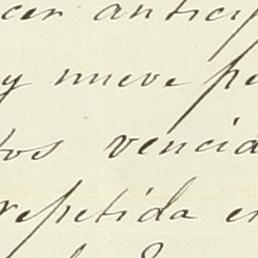 cer anticip
y nueve pe
tos vencid
repetida en